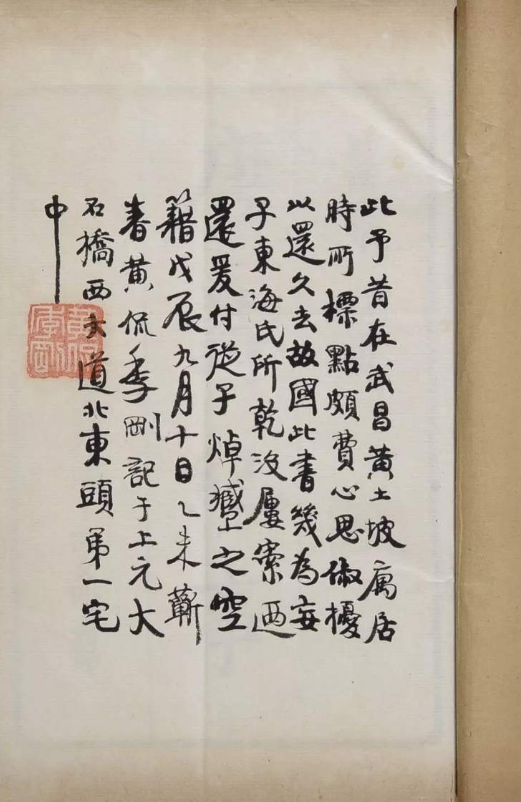 此予昔在武昌黃土坡寓居
時所標點頗費心思俶擾
以還久去故國此書幾為妄
子東海氏所乾沒屢索迺
還爰付從子焯臧之空
籍戊辰九月十日乙未蘄
春黃侃季剛記于上元大
石橋西大道北東頭第一宅
中
黃侃季剛